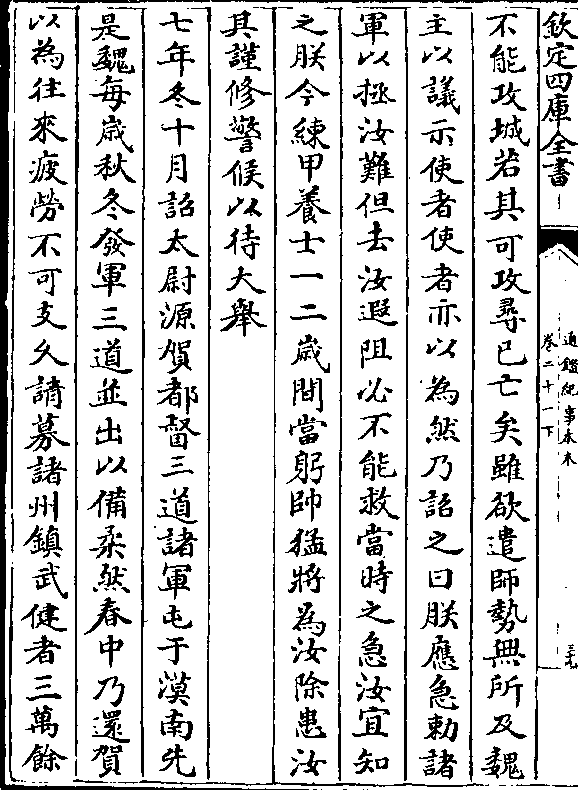 欽定四庫全書
通鑑紀事本末
卷二十一下
三九
不能攻城若其可攻尋已亡矣雖欲遣師勢無所及魏
主以議示使者使者亦以為然乃詔之曰朕應急勅諸
軍以拯汝難但去汝遐阻必不能救當時之急汝宜知
之朕今練甲養士一二歲間當躬帥猛將為汝除患汝
其謹修警候以待大舉
七年冬十月詔太尉源賀都督三道諸軍屯于漠南先
是魏每歲秋冬發軍三道並出以備柔然春中乃還賀
以為往來疲勞不可支久請募諸州鎮武健者三萬餘